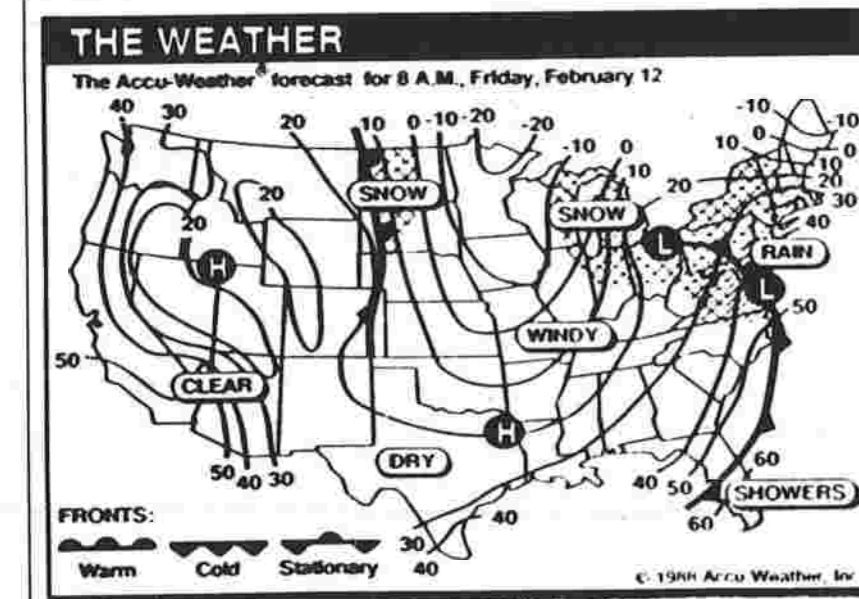 THE WEATHER
The Accu-Weather® forecast for 8 A.M., Friday, February 12
40 30 20 10 0 -10 -20 -20 -10 0 10 20 10 0 -10 -10 0 10 20 30 40
SNOW
SNOW
20 20
H
L
RAIN
L
50
WINDY
50
CLEAR
H
DRY
50 40 30
40 50 60
SHOWERS
60
30 40
40
FRONTS:
Warm Cold Stationary
© 1988 Accu Weather, Inc